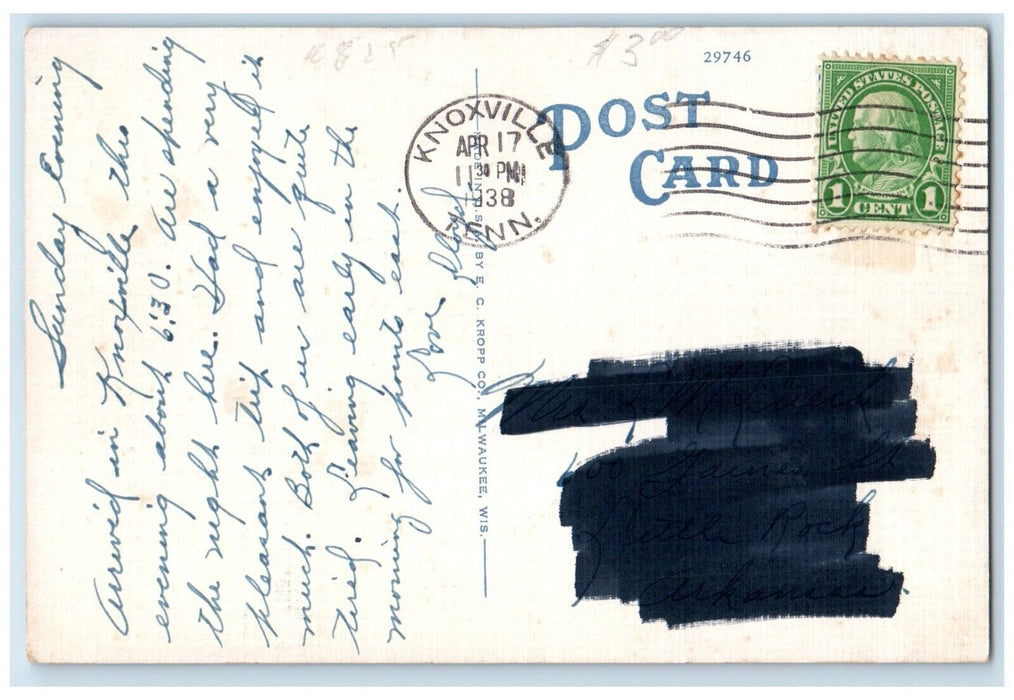 Sunday Evening
Arrived in Knoxville this
evening about 6:30. Are spending
the night here. Had a very
pleasant trip and enjoyed it
much. Both of us are quite
tired. Leaving early in the
morning for points east.
Love
K825
$3.00
29746
POST
CARD
KNOXVILLE
APR 17
11 30 PM
1938
TENN.
UNITED STATES POSTAGE
1 CENT 1
BY E. C. KROPP CO., MILWAUKEE, WIS.
Mrs
St
Little Rock
Arkansas.